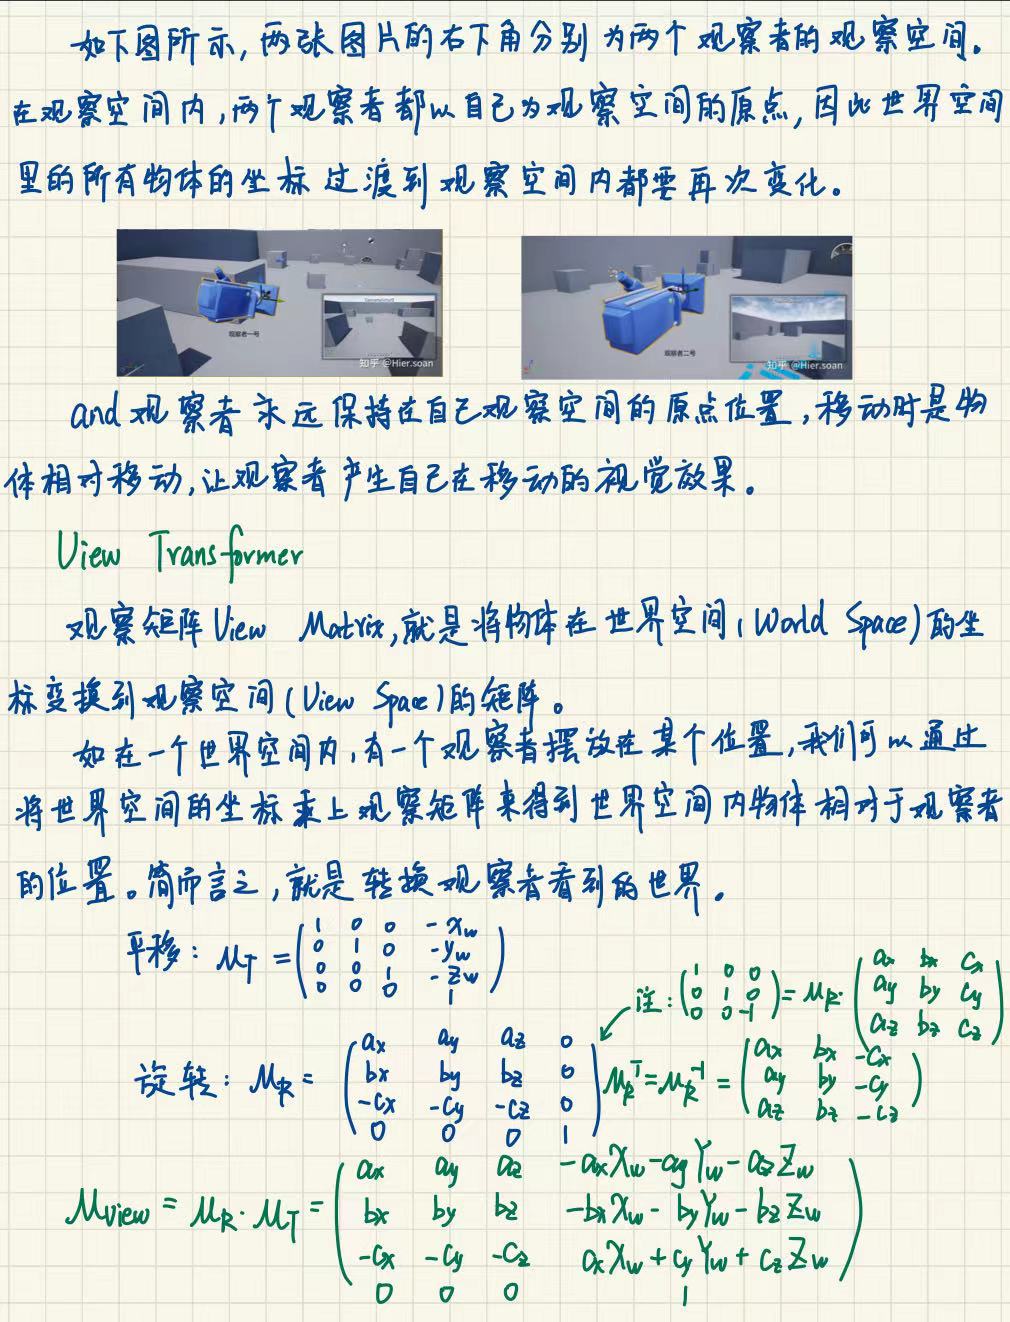 如下图所示,两张图片的右下角分别为两个观察者的观察空间。
在观察空间内,两个观察者都以自己为观察空间的原点,因此世界空间
里的所有物体的坐标过渡到观察空间内都要再次变化。
观察者一号
知乎 @Hier.soan
观察者二号
知乎 @Hier.soan
and观察者永远保持在自己观察空间的原点位置,移动时是物
体相对移动,让观察者产生自己在移动的视觉效果。
View Transformer
观察矩阵View Matrix,就是将物体在世界空间(World Space)的坐
标变换到观察空间(View Space)的矩阵。
如在一个世界空间内,有一个观察者摆放在某个位置,我们可以通过
将世界空间的坐标乘上观察矩阵来得到世界空间内物体相对于观察者
的位置。简而言之,就是转换观察者看到的世界。
平移: M_T = (1 0 0 -x_w
0 1 0 -y_w
0 0 1 -z_w
0 0 0 1)
注: (1 0 0
0 1 0
0 0 -1) = M_R · (ax bx cx
ay by cy
az bz cz)
旋转: M_R = (ax ay az 0
bx by bz 0
-cx -cy -cz 0
0 0 0 1)
M_R^T = M_R^-1 = (ax bx -cx
ay by -cy
az bz -cz)
M_View = M_R · M_T = (ax ay az -axXw-ayYw-azZw
bx by bz -bxXw-byYw-bzZw
-cx -cy -cz cxXw+cyYw+czZw
0 0 0 1)